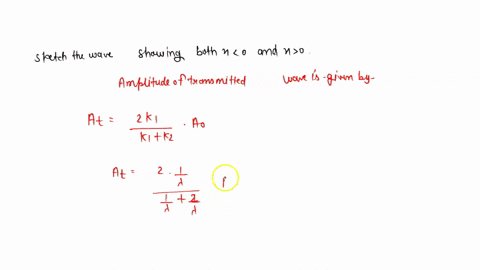 sketch the wave showing both x < 0 and x > 0.
Amplitude of transmitted wave is given by-
At = 2K1 / K1+K2 . A0
At = 2 . 1/λ / 1/λ + 2/λ